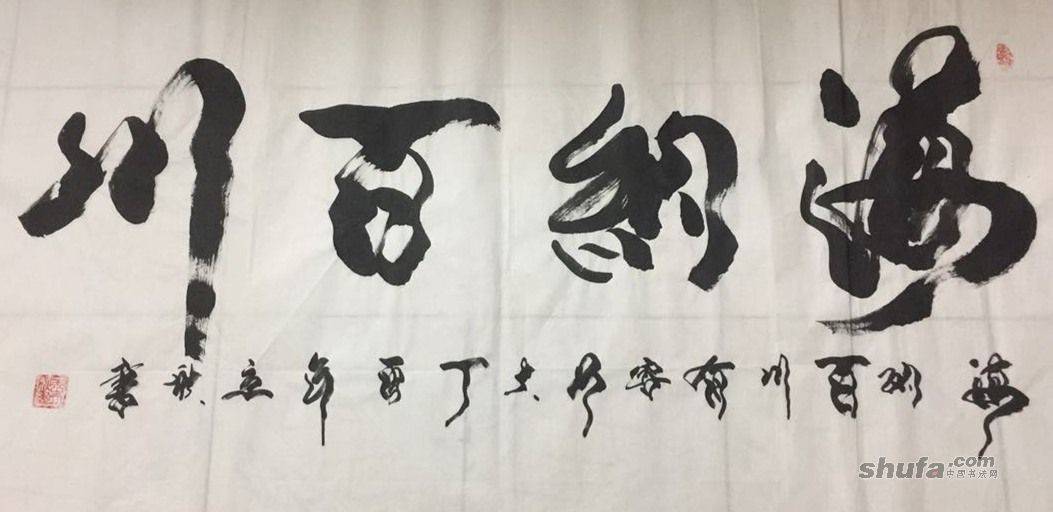 海纳百川
海纳百川有容乃大丁酉年立秋书
shufa.com
中国书法网